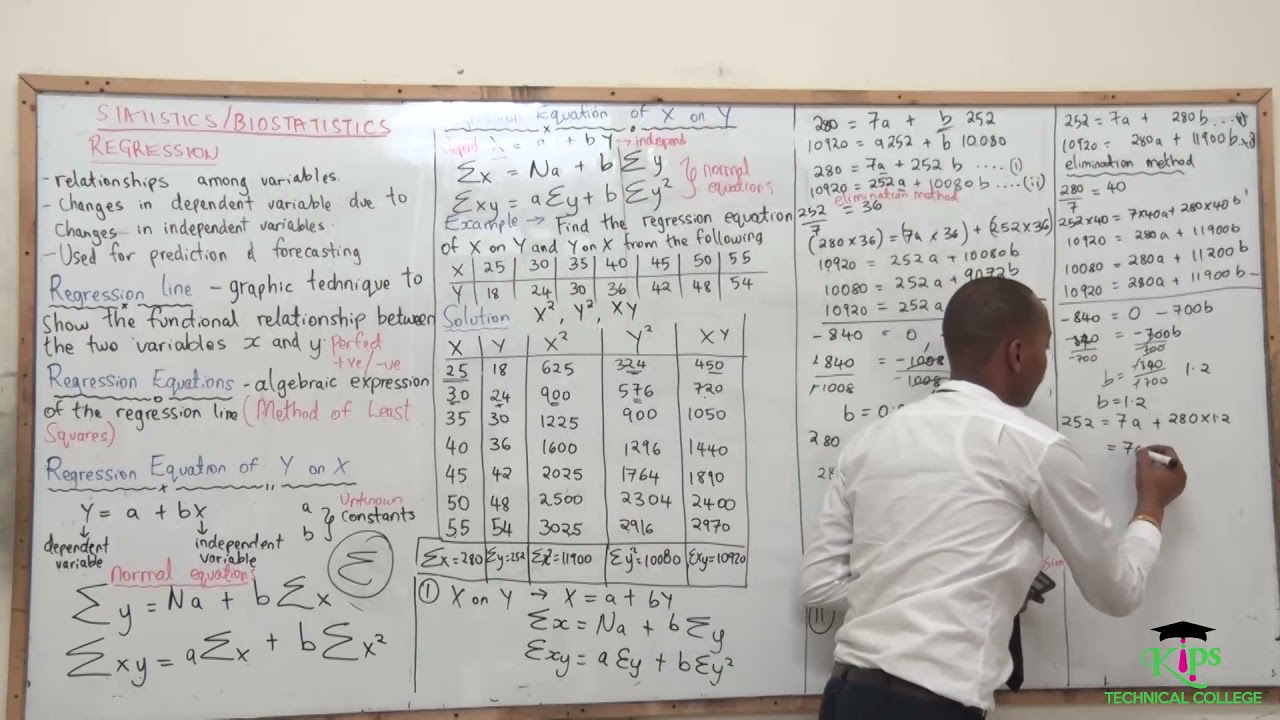 STATISTICS/BIOSTATISTICS
REGRESSION
- relationships among variables.
- Changes in dependent variable due to
changes in independent variables.
- Used for prediction & forecasting
Regression line - graphic technique to
show the functional relationship between
the two variables x and y Perfect
+ve/-ve
Regression Equations - algebraic expression
of the regression line (Method of Least
Squares)
Regression Equation of Y on X
Y = a + bX
a
b } Unknown constants
dependent variable
independent variable
Normal equations
Σy = Na + bΣx
Σxy = aΣx + bΣx²
Σ
Equation of X on Y
X = a + bY → independ
Σx = Na + bΣy
Σxy = aΣy + bΣy²
} normal equations
Example → Find the regression equation
of X on Y and Y on X from the following
X 25 30 35 40 45 50 55
Y 18 24 30 36 42 48 54
Solution X², Y², XY
X Y X² Y² XY
25 18 625 324 450
30 24 900 576 720
35 30 1225 900 1050
40 36 1600 1296 1440
45 42 2025 1764 1890
50 48 2500 2304 2400
55 54 3025 2916 2970
Σx=280 Σy=252 Σx²=11900 Σy²=10080 Σxy=10920
① X on Y → X = a + bY
Σx = Na + bΣy
Σxy = aΣy + bΣy²
280 = 7a + b 252
10920 = a252 + b 10080
280 = 7a + 252b ....(i)
10920 = 252a + 10080b ....(ii)
elimination method
252/7 = 36
(280×36) = (7a×36) + (252×36)
10920 = 252a + 10080b
10080 = 252a + 9072b
10920 = 252a
-840 = 0
-840/-1008 = -1008/-1008
b = 0.
280
28
252 = 7a + 280b
10920 = 280a + 11900b
elimination method
280/7 = 40
252×40 = 7×40a + 280×40b
10920 = 280a + 11900b
10080 = 280a + 11200b
10920 = 280a + 11900b
-840 = 0 - 700b
-840/-700 = -700b/-700
b = -840/-700 1.2
b = 1.2
252 = 7a + 280×1.2
= 7a
Kips
TECHNICAL COLLEGE